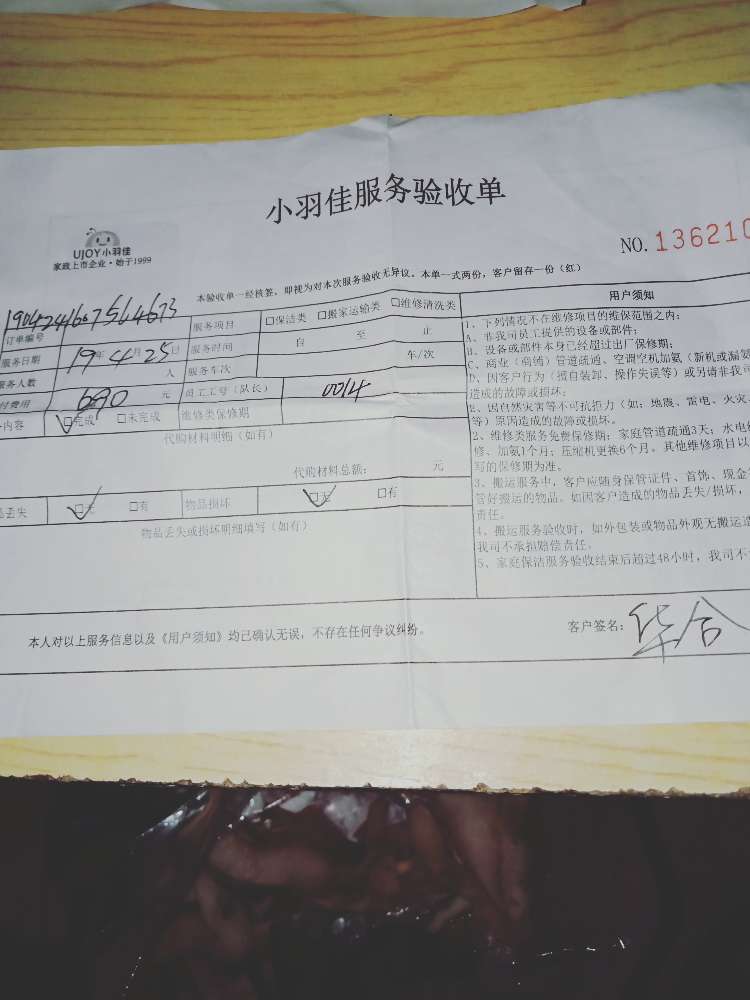 小羽佳服务验收单
UJOY小羽佳
家政上市企业·始于1999
NO.136210
本验收单一经核签，即视为对本次服务验收无异议。本单一式两份，客户留存一份（红）
订单编号
服务项目 □保洁类 □搬家运输类 □维修清洗类
服务日期 19年4月25日 服务时间 自 至 止
服务人数 人 服务车次 车/次
付费用 690 元 员工工号（队长） 0014
内容 □完成 □未完成 维修类保修期
代购材料明细（如有）
代购材料总额： 元
品丢失 □无 □有 物品损坏 □无 □有
物品丢失或损坏明细填写（如有）
用户须知
1、下列情况不在维修项目的维保范围之内：
A、非我司员工提供的设备或部件；
B、设备或部件本身已经超过出厂保修期；
C、商业（商铺）管道疏通、空调空机加氨（新机或漏氨
D、因客户行为（擅自装卸、操作失误等）或另请非我司
造成的故障或损坏；
E、因自然灾害等不可抗拒力（如：地震、雷电、火灾、
等）原因造成的故障或损坏。
2、维修类服务免费保修期：家庭管道疏通3天；水电
修、加氨1个月；压缩机更换6个月。其他维修项目以
写的保修期为准。
3、搬运服务中，客户应随身保管证件、首饰、现金
管好搬运的物品。如因客户造成的物品丢失/损坏，
责任。
4、搬运服务验收时，如外包装或物品外观无搬运造
我司不承担赔偿责任。
5、家庭保洁服务验收结束后超过48小时，我司不
本人对以上服务信息以及《用户须知》均已确认无误，不存在任何争议纠纷。
客户签名：